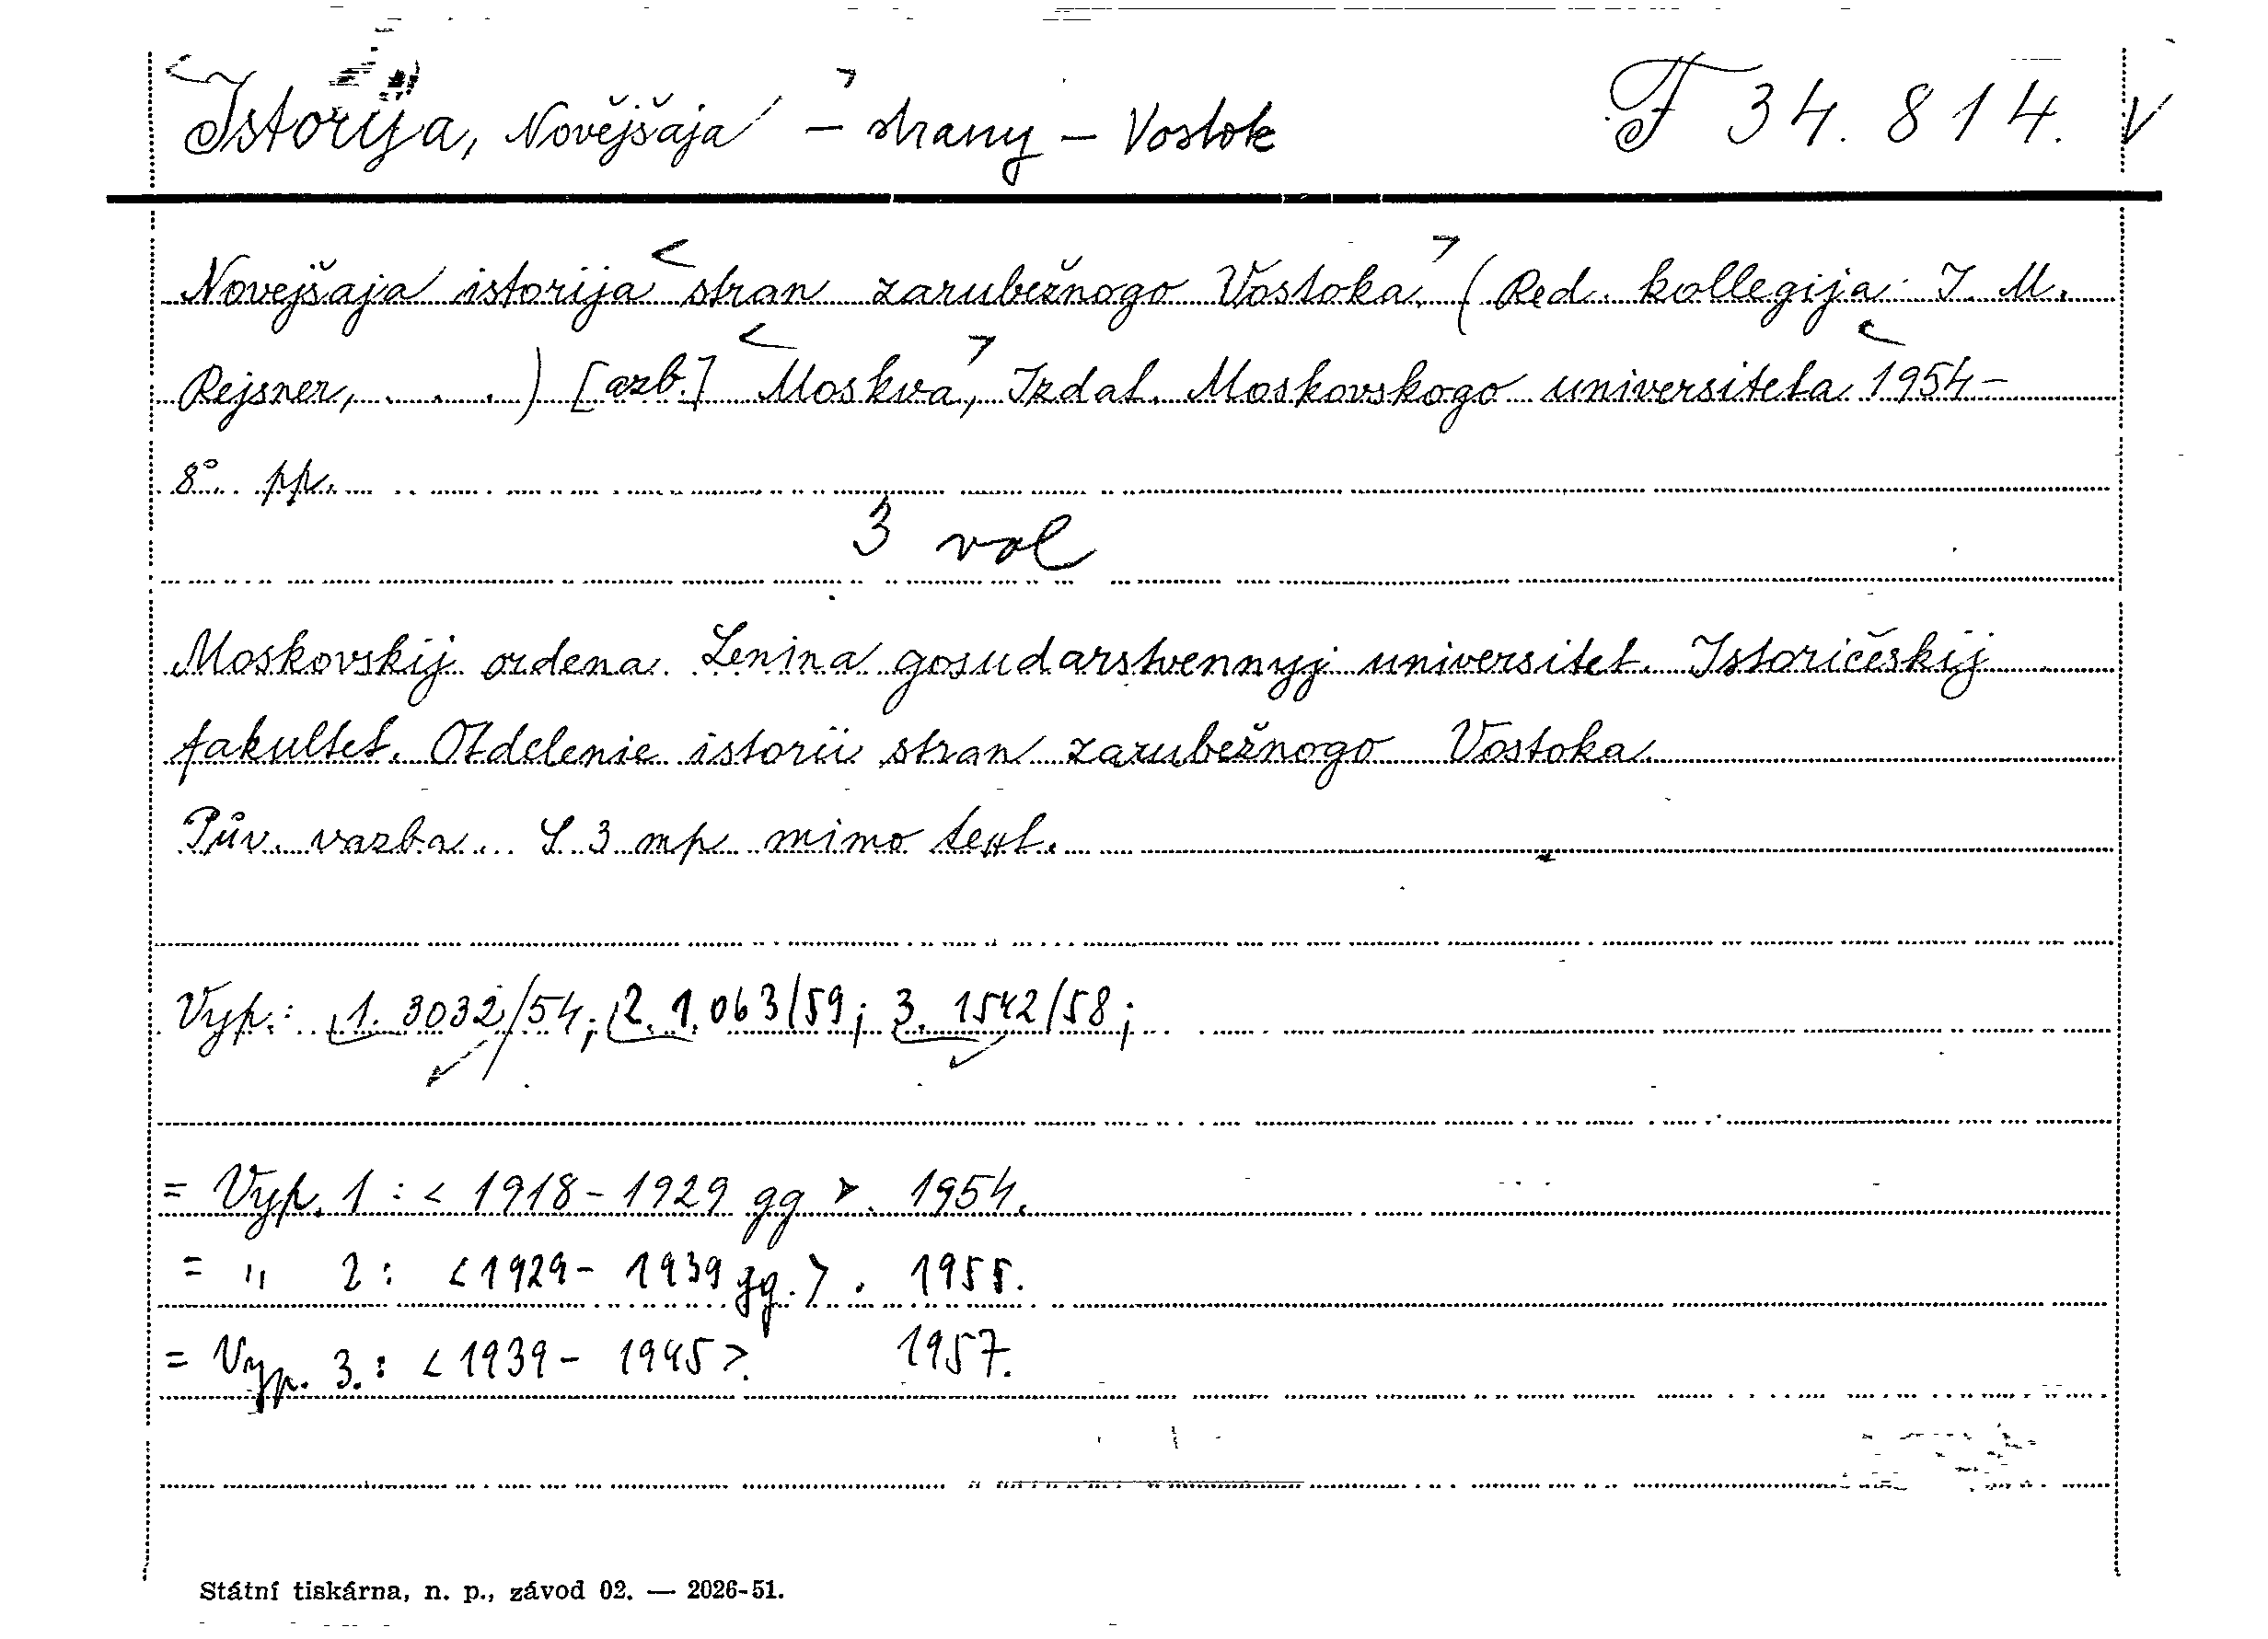 <Istorija, Novějšaja> – strany – Vostok F 34.814. V
Novejšaja istorija <stran zarubežnogo Vostoka.> (Red. kollegija: I. M.
Rejsner, . . . .) [azb.] <Moskva>, Izdat. Moskovskogo universiteta <1954–
8°. pp.
3 vol
Moskovskij ordena Lenina gosudarstvennyj universitet. Istoričeskij
fakultet. Otdelenie istorii stran zarubežnogo Vostoka.
Pův. vazba. S 3 mp mimo text.
Vyp.: 1. 3032/54; 2. 1.063/59; 3. 1542/58;
= Vyp. 1 : < 1918 – 1929 gg >. 1954.
= " 2 : < 1929 – 1939 gg. > . 1955.
= Vyp. 3. : < 1939 – 1945 >. 1957.
Státní tiskárna, n. p., závod 02. — 2026-51.